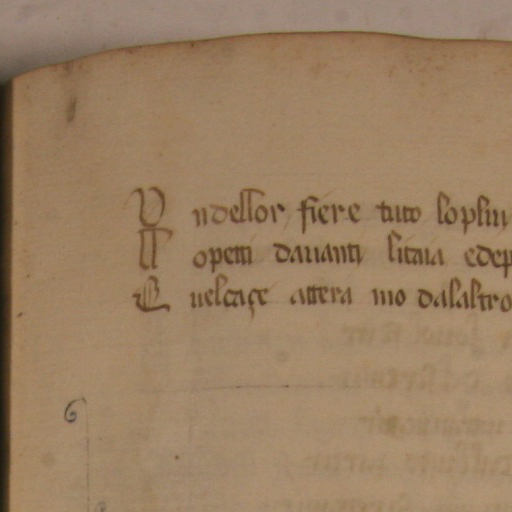 V ndellor fiere tuto loplui
opetti dauanti litaia edep
Q uelcaçe attera mo dalaltro
6